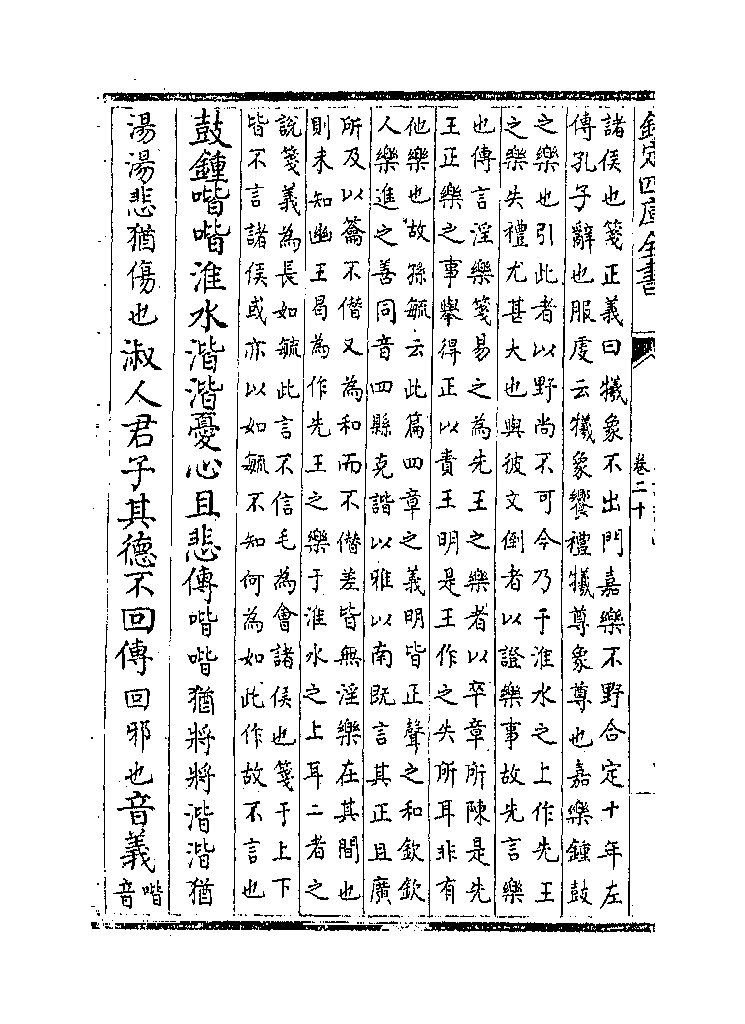 欽定四庫全書
卷二十
諸侯也箋正義曰犧象不出門嘉樂不野合定十年左
傳孔子辭也服虔云犧象饗禮犧尊象尊也嘉樂鍾鼓
之樂也引此者以野尚不可今乃于淮水之上作先王
之樂失禮尤甚大也與彼文倒者以證樂事故先言樂
也傳言淫樂箋易之為先王之樂者以卒章所陳是先
王正樂之事舉得正以責王明是王作之失所耳非有
他樂也故孫毓云此篇四章之義明皆正聲之和欽欽
人樂進之善同音四縣克諧以雅以南既言其正且廣
所及以籥不僭又為和而不僭差皆無淫樂在其間也
則未知幽王曷為作先王之樂于淮水之上耳二者之
說箋義為長如毓此言不信毛為會諸侯也箋于上下
皆不言諸侯或亦以如毓不知何為如此作故不言也
鼓鍾喈喈淮水湝湝憂心且悲傳喈喈猶將將湝湝猶
湯湯悲猶傷也淑人君子其德不回傳回邪也音義喈
音